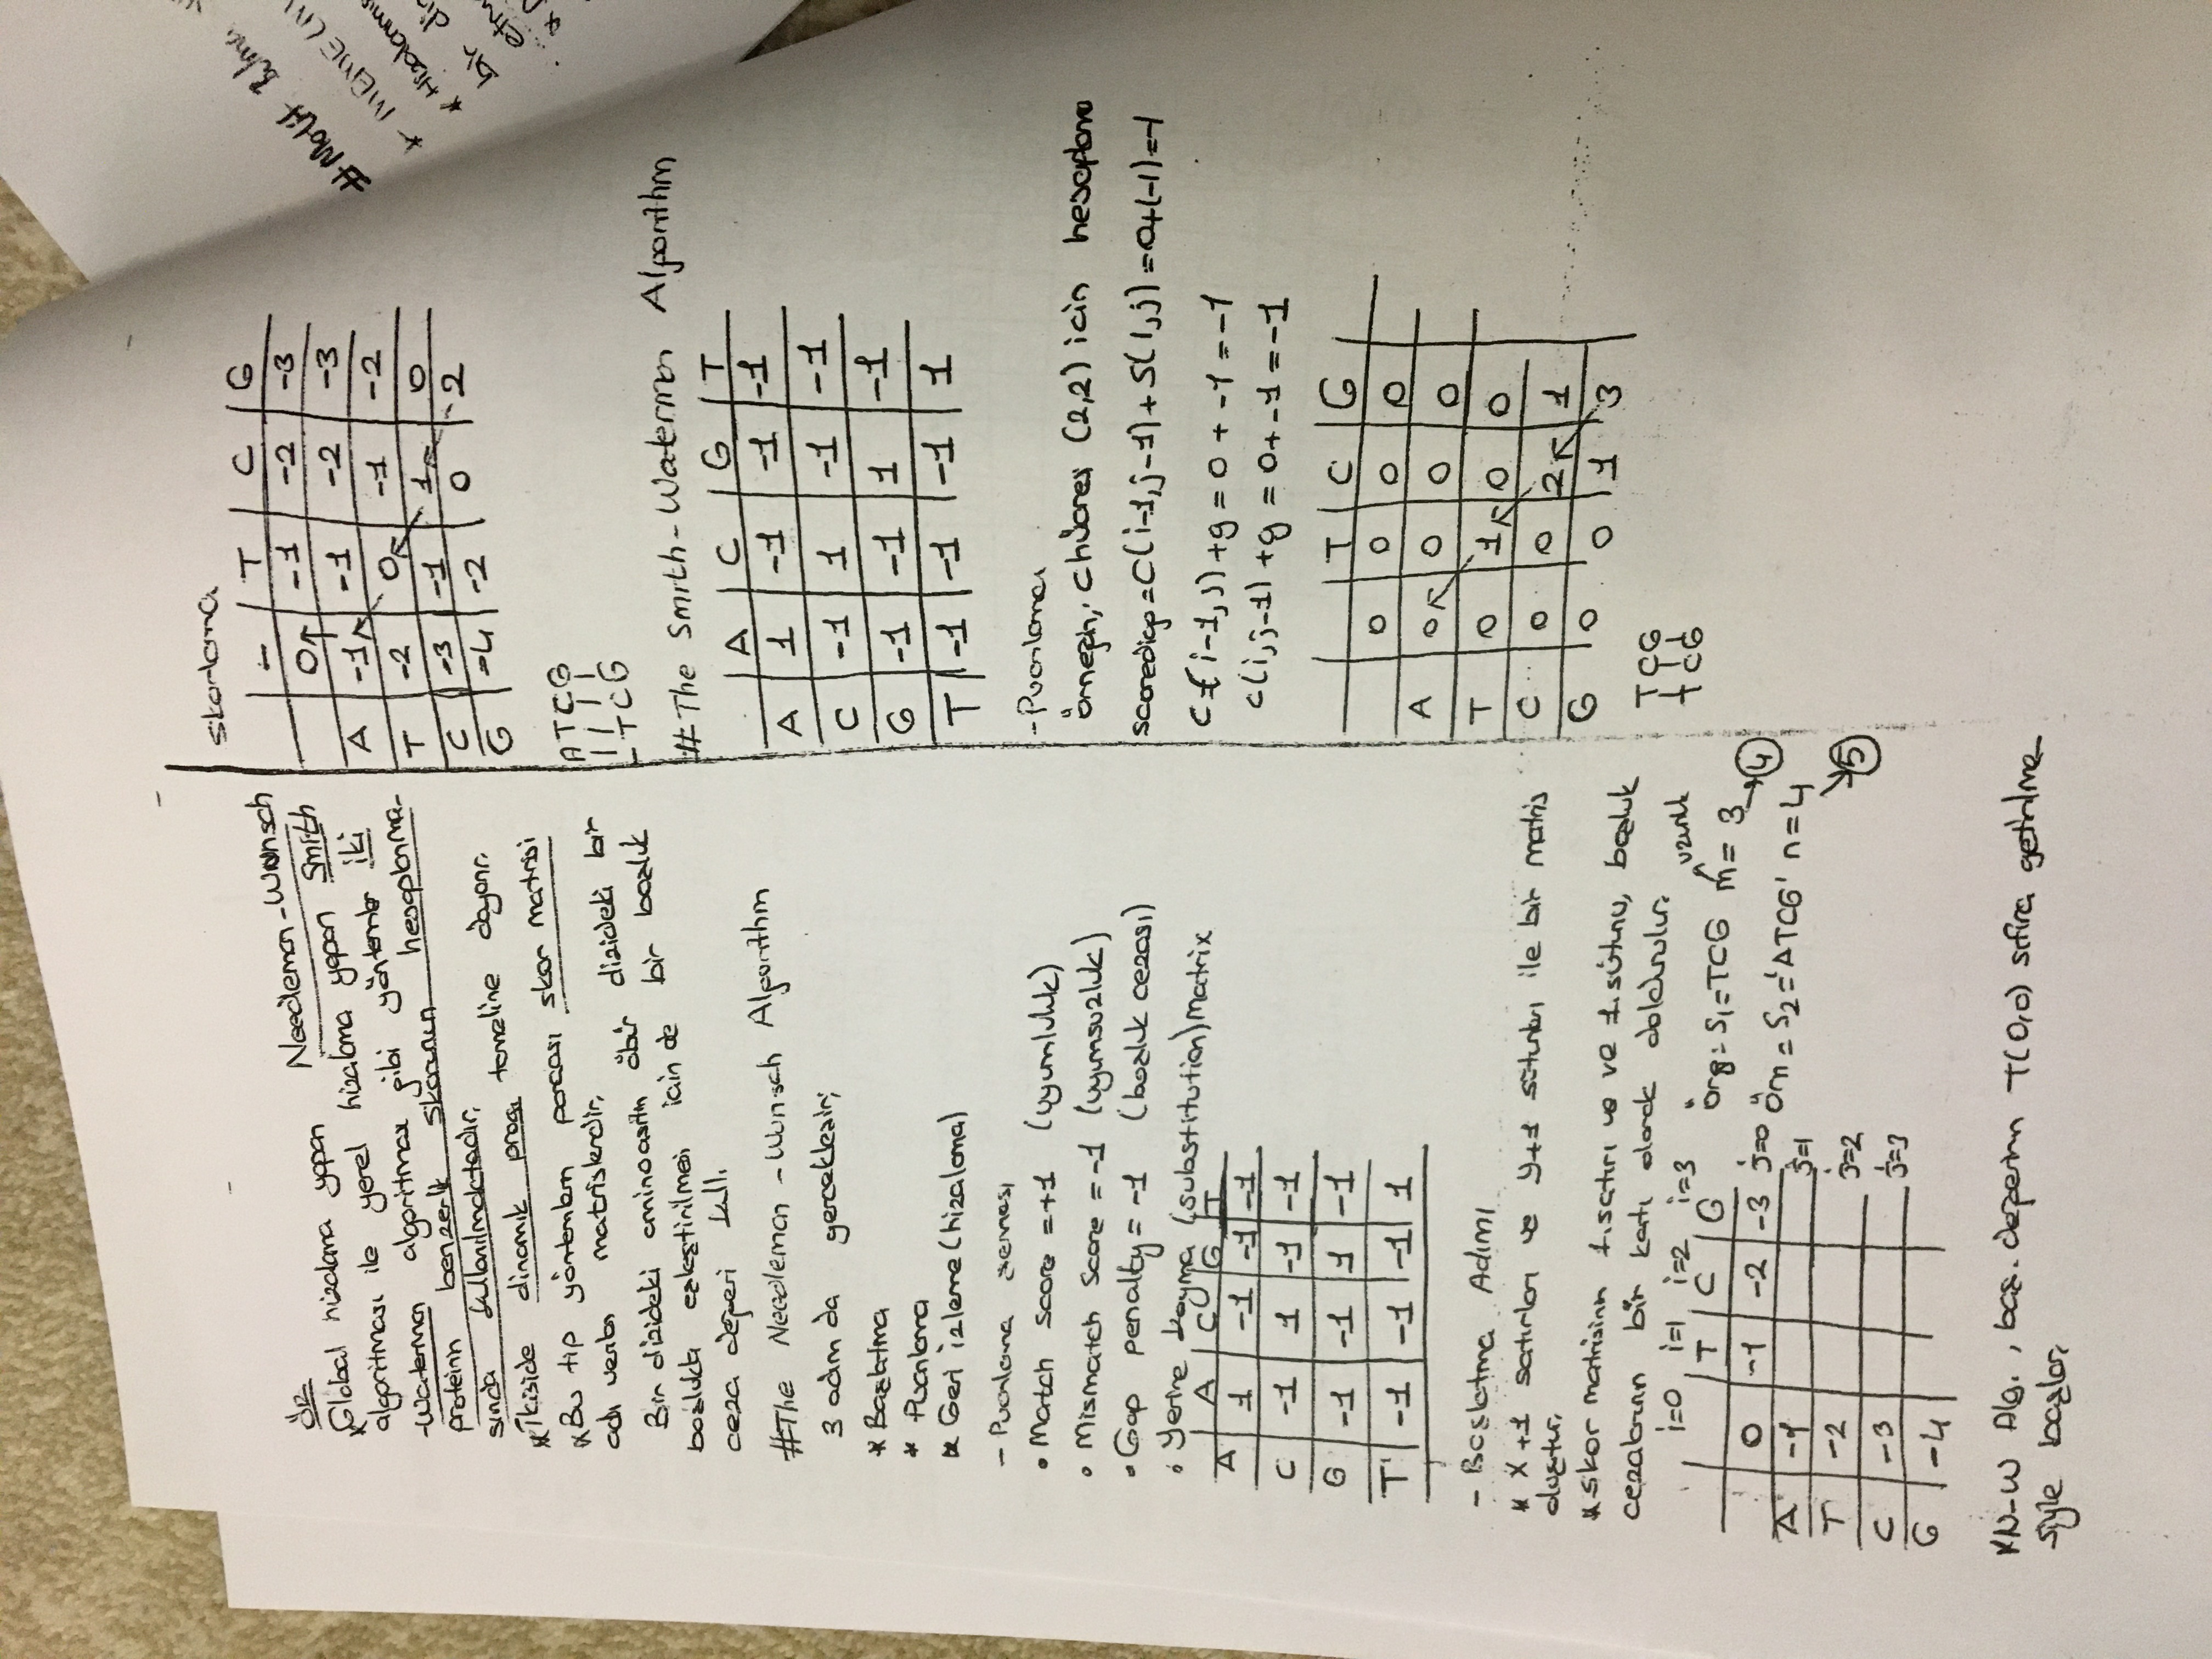 ör
*Global hizalama yapan Needleman-Wunsch
algoritması ile yerel hizalama yapan Smith
-Waterman algoritması gibi yöntemler iki
proteinin benzerlik skorunun hesaplanma-
sında kullanılmaktadır.
*İkiside dinamik prog. temeline dayanır.
*Bu tip yöntemlerin parçası skor matrisi
adı verilen matrislerdir.
Bir dizideki aminoasitin öbür dizideki bir
boşlukla eşleştirilmesi icin de bir boşluk
ceza değeri kull.
#The Needleman-Wunsch Algorithm
3 adım da gerçekleşir;
* Başlatma
* Puanlama
* Geri izleme (hizalama)
- Puanlama şeması
• Match Score = +1 (uyumluluk)
• Mismatch Score = -1 (uyumsuzluk)
• Gap penalty = -1 (boşluk cezası)
• Yerine koyma (substitution) Matrix
A C G T
A 1 -1 -1 -1
C -1 1 -1 -1
G -1 -1 1 -1
T -1 -1 -1 1
- Başlatma Adımı
* X+1 satırları ve Y+1 sütunları ile bir matris
oluştur.
* Skor matrisinin 1.satırı ve ve 1.sütunu, boşluk
cezalarının bir katı olarak doldurulur.
i=0 i=1 i=2 i=3
T C G
0 -1 -2 -3 j=0
A -1 j=1
T -2 j=2
C -3 j=3
G -4
uzunluk
örg: S1=TCG m= 3 → 4
örn = S2='ATCG' n=4
5
*N-W Alg., baş. değerinin T(0,0) sıfıra getirilme
siyle başlar.
Skorlama
- T C G
0 -1 -2 -3
A -1 -1 -2 -3
T -2 0 -1 -2
C -3 -1 1 0
G -4 -2 0 2
ATCG
| | | |
- TCG
#The Smith-Waterman Algorithm
A C G T
A 1 -1 -1 -1
C -1 1 -1 -1
G -1 -1 1 -1
T -1 -1 -1 1
-Puanlama
örneğin, chücresi (2,2) icin hesaplama
scorediag = C(i-1,j-1) + S(i,j) = 0+(-1)=-1
C (i-1,j) + g = 0 + -1 = -1
c(i,j-1) + g = 0 + -1 = -1
T C G
0 0 0 0
A 0 0 0 0
T 0 1 0 0
C 0 0 2 1
G 0 0 1 3
TCG
| | |
TCG
#Motif Bulma
* MEME (M
* Hizalanmı
bir di